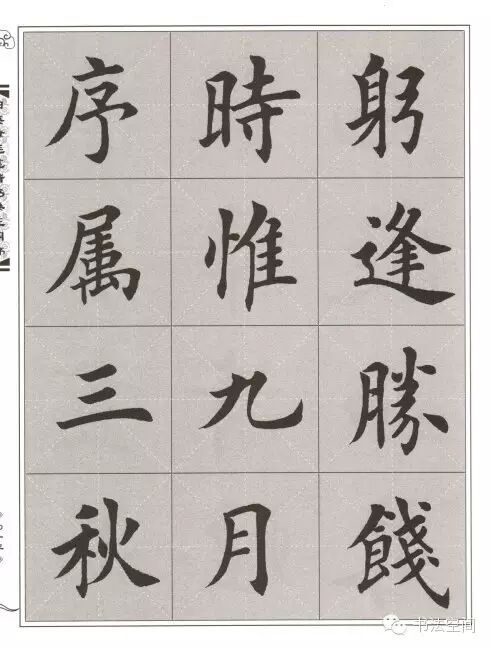 躬逢勝餞
時惟九月
序属三秋
书法空间